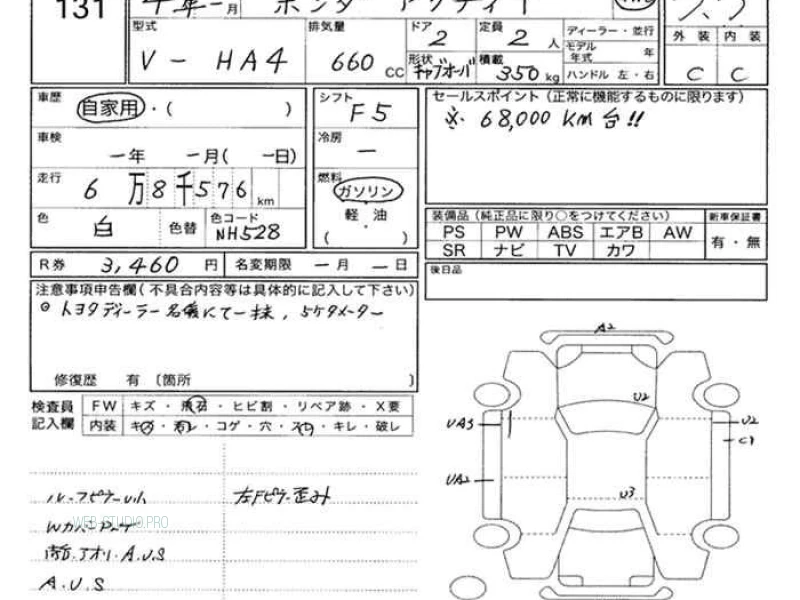 131
ホンダ アクティ
型式 V - HA4
排気量 660 cc
ドア 2
定員 2 人
形状 キャブオーバ
積載 350 kg
ディーラー・並行
モデル年式 年
ハンドル 左・右
外装 内装
C C
車歴 自家用・( )
シフト F5
車検 一年 一月( 一日)
冷房 ー
走行 6万8千576 km
燃料 ガソリン
軽・油
( )
色 白 色替 色コード NH528
セールスポイント(正常に機能するものに限ります)
※ 68,000 km台!!
装備品(純正品に限り○をつけてください) 新車保証書
PS PW ABS エアB AW
SR ナビ TV カワ
有・無
後日品
R券 3,460 円 名変期限 一月 一日
注意事項申告欄(不具合内容等は具体的に記入して下さい)
トヨタディーラー名儀にて一抹, 5ケタメーター
修復歴 有 〔箇所 〕
検査員記入欄
FW キズ・飛石・ヒビ割・リペア跡・X要
内装 キズ・汚レ・コゲ・穴・スレ・キレ・破レ
左Fピラー歪み
WEB-STUDIO.PRO
Wカバー
アオリ.A.U.S
A.U.S
A2
U2
UA3
UA2
U3
U2
C1